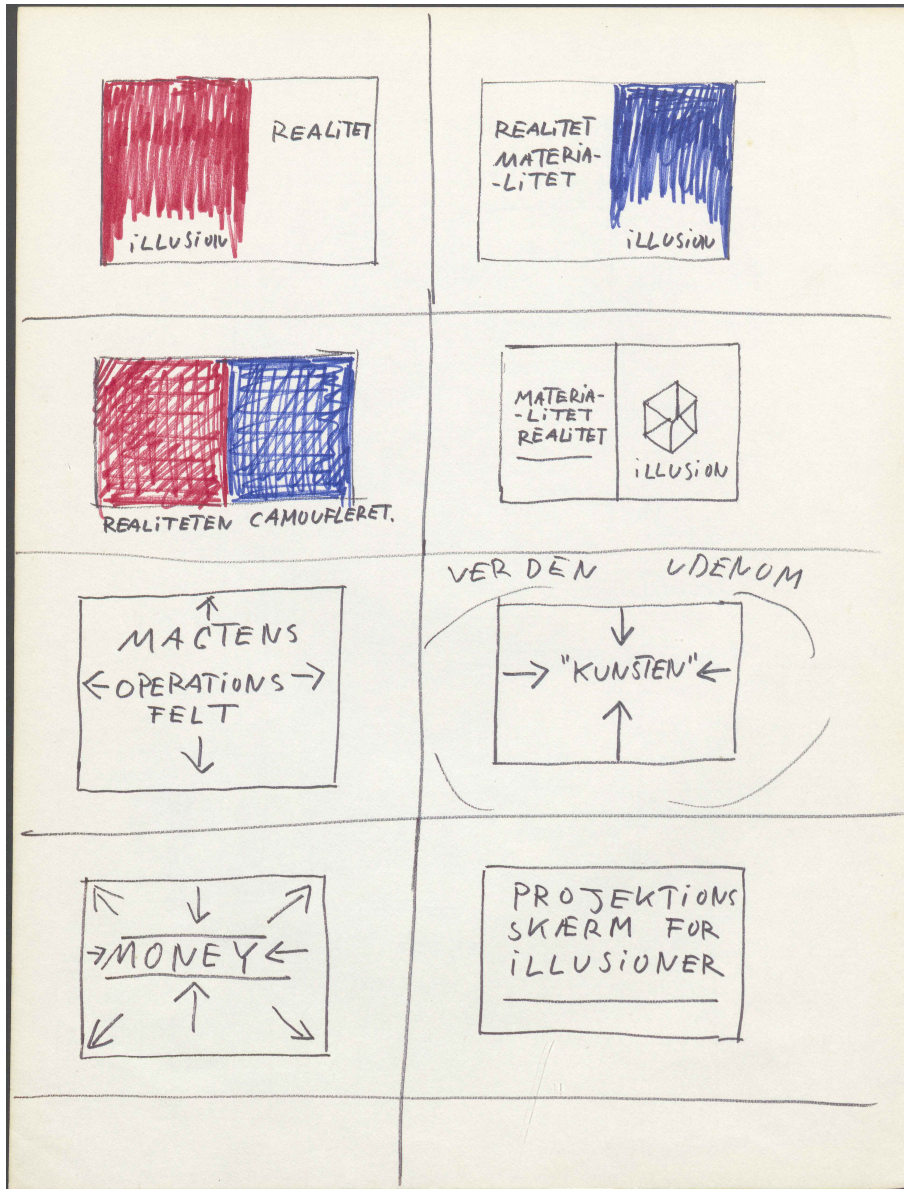 REALITET
ILLUSION
REALITET
MATERIA-
-LITET
ILLUSION
REALITETEN CAMOUFLERET.
MATERIA-
-LITET
REALITET
ILLUSION
MAGTENS
OPERATIONS
FELT
VERDEN UDENOM
"KUNSTEN"
MONEY
PROJEKTIONS
SKÆRM FOR
ILLUSIONER